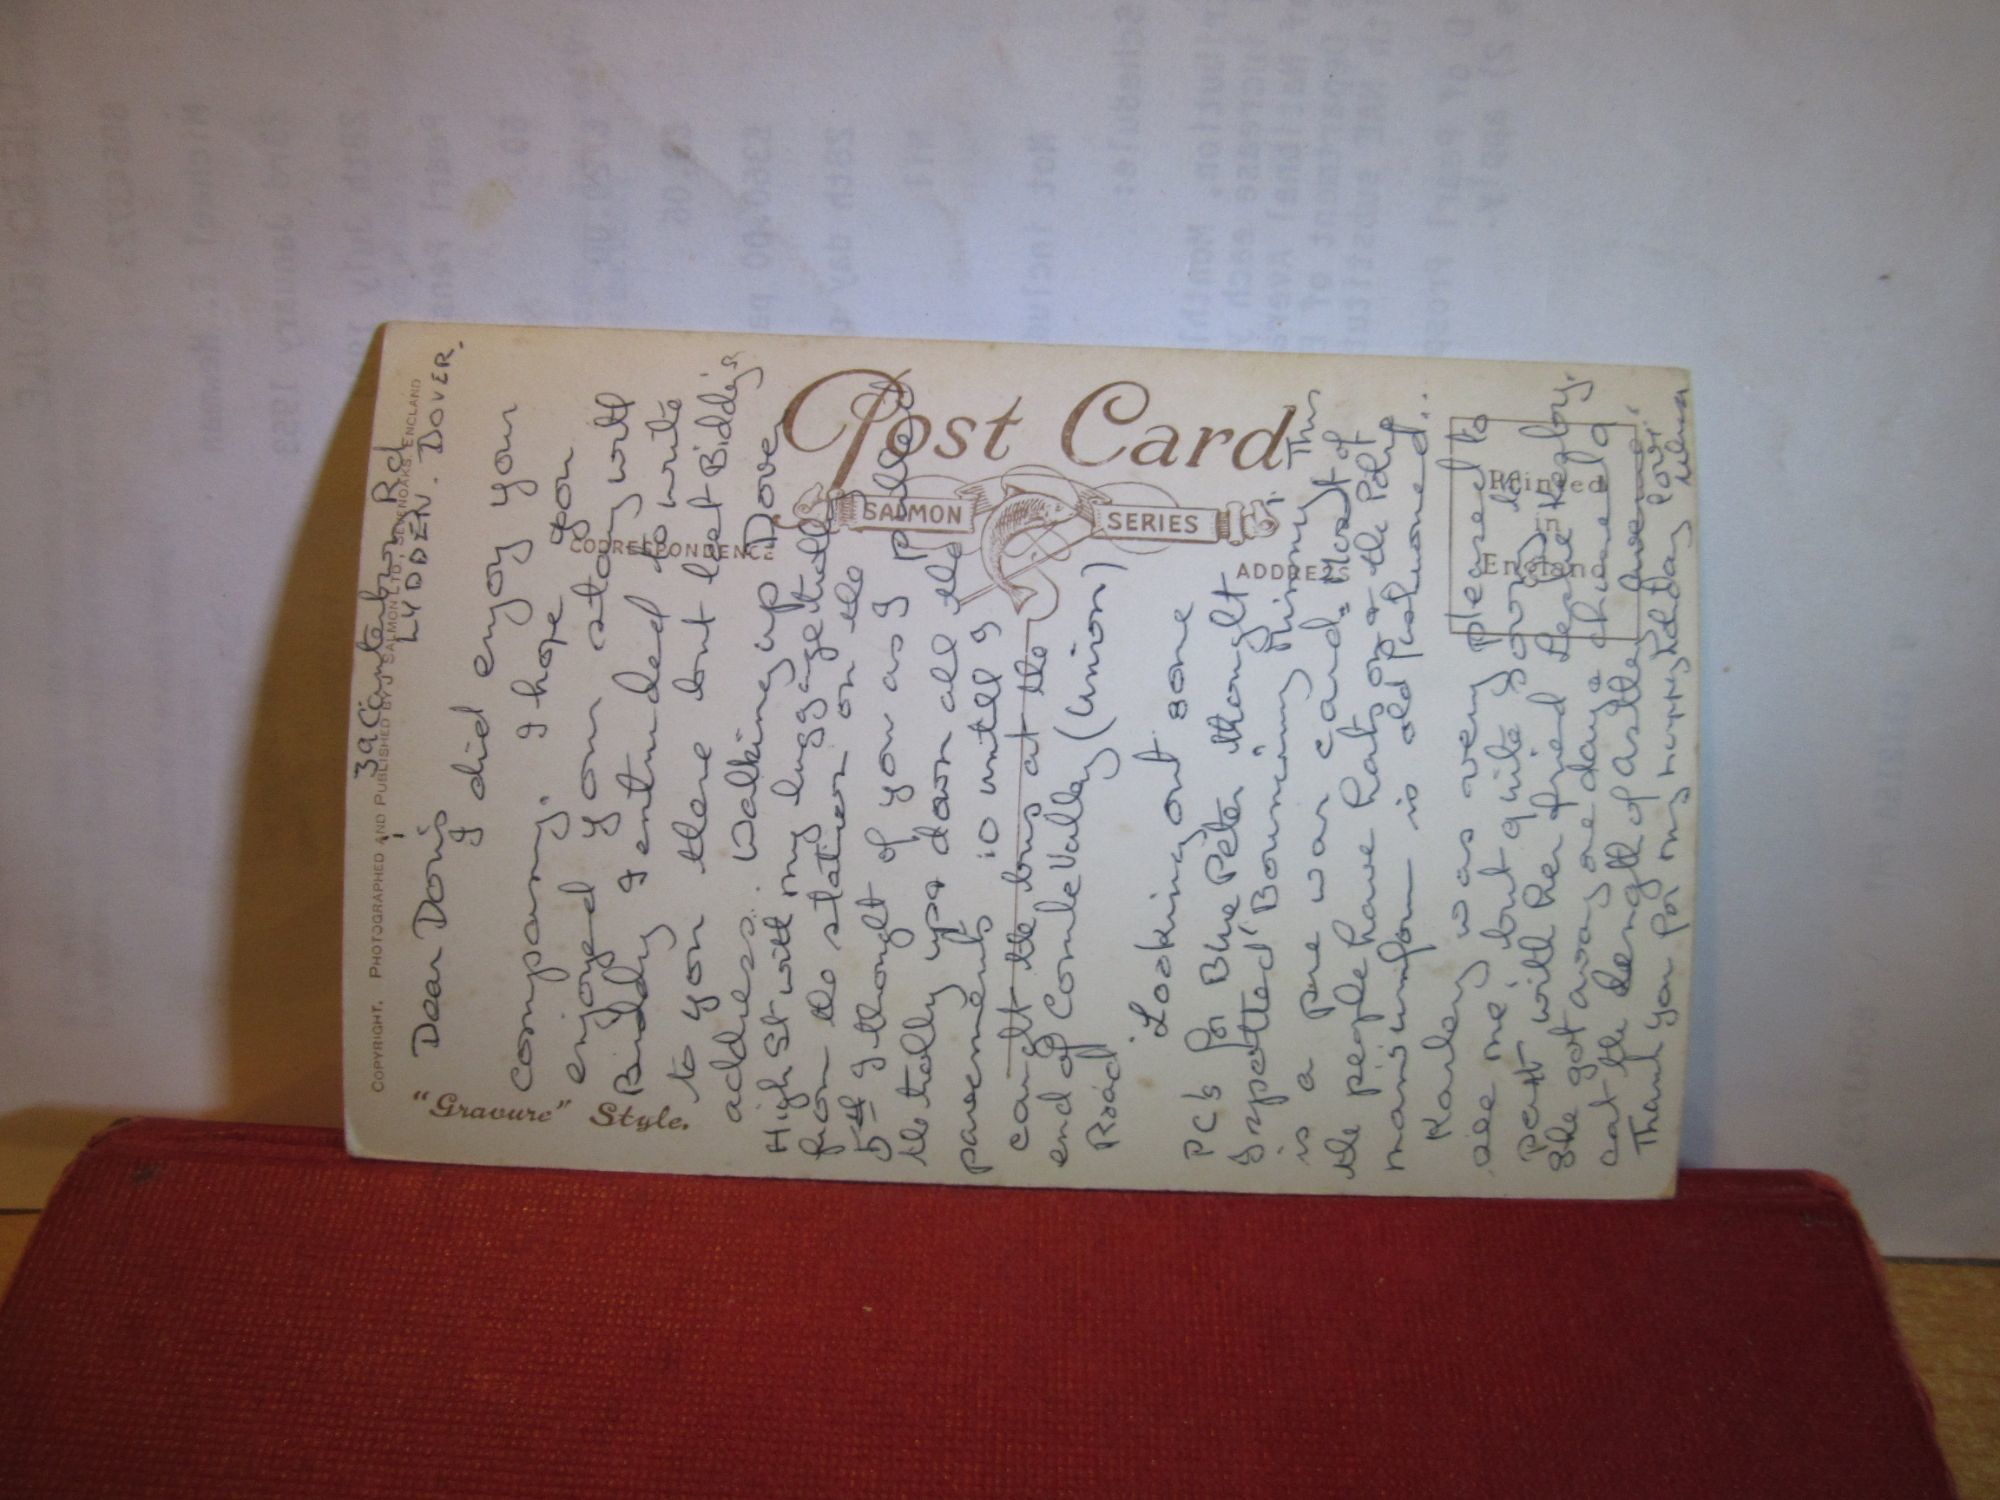 3a Canterbury Rd
LYDDEN. DOVER.
COPYRIGHT. PHOTOGRAPHED AND PUBLISHED BY J. SALMON LTD., SEVENOAKS, ENGLAND
"Gravure" Style.
Post Card
SALMON SERIES
CORRESPONDENCE
ADDRESS
Printed
in
England
Dear Doris
I did enjoy your
company. I hope you
enjoyed your stay with
Biddy I entended to write
to you there but lost Biddy's
address. Walking up Dover
High St with my luggage trolly
from the station on the
5th I thought of you as I pulled
the trolly up & down all the
pavements 10 until I
caught the bus at the
end of Coombe Valley (Union)
Road
Looking out some
PC's for Blue Peter thought
I spotted "Bouncing Jimmy". This
is a pre war card. Most of
the people have hats on & the Police
mans uniform is old fashioned..
Karley was very pleased to
see me, but quite sorry to
part with her friend Leslie Kegby.
She got away one day & chased a
cat the length of Astley Avenue.
Thank you for my happy holiday love